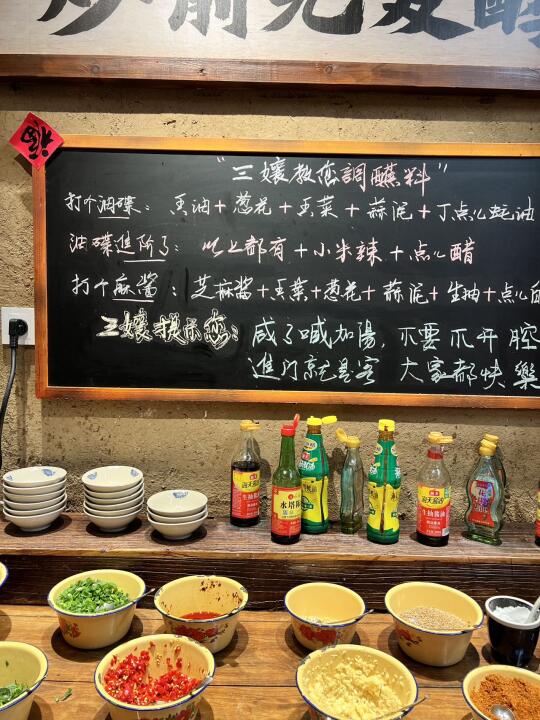 炒前先发酵
福
"三孃教您調蘸料"
打个油碟：香油+葱花+香菜+蒜泥+丁点儿蚝油
油碟进阶了：以上都有+小米辣+点儿醋
打个麻酱：芝麻酱+香菜+葱花+蒜泥+生抽+点儿
三孃提示您：咸了喊加湯，不要不开腔
進门就是客 大家都快樂
海天酱油
生抽酱油
水塔
生抽酱油